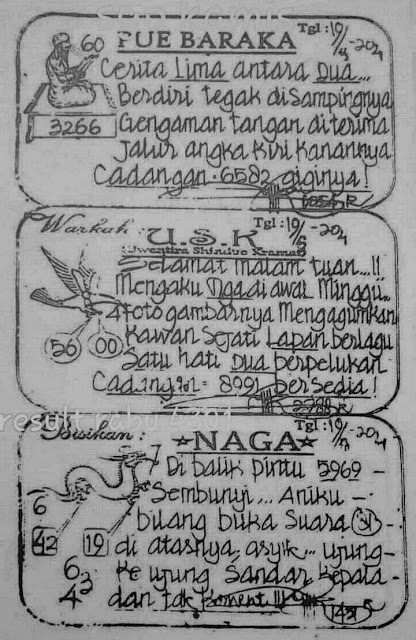 60
PUE BARAKA
Tgl: 19/ -201
Cerita Lima antara Dua...
Berdiri tegak di Sampingnya
3266
Gengaman tangan diterima
Jalur angka Kiri Kanannya
Cadangan. 6582 giginya!
Warkah:
U.S.K
Tgl: 19/ -201
Selamat malam tuan...!!
Mengaku Nga di awal Minggu...
4 foto gambarnya Mengagumkan
56 00
Kawan Sejati Lapan berlagu
Satu hati Dua berpelukan
Cadangan = 8991 bersedia!
result rabu
Bisikan:
★NAGA★
Tgl: 19/ -201
7
Di balik pintu 5969 -
Sembunyi... Aniku -
6
bilang buka Suara
42 19
di atasnya asyik... ujung-
63
Ke ujung Sandar Kepala -
4
dan tak Koment!!!